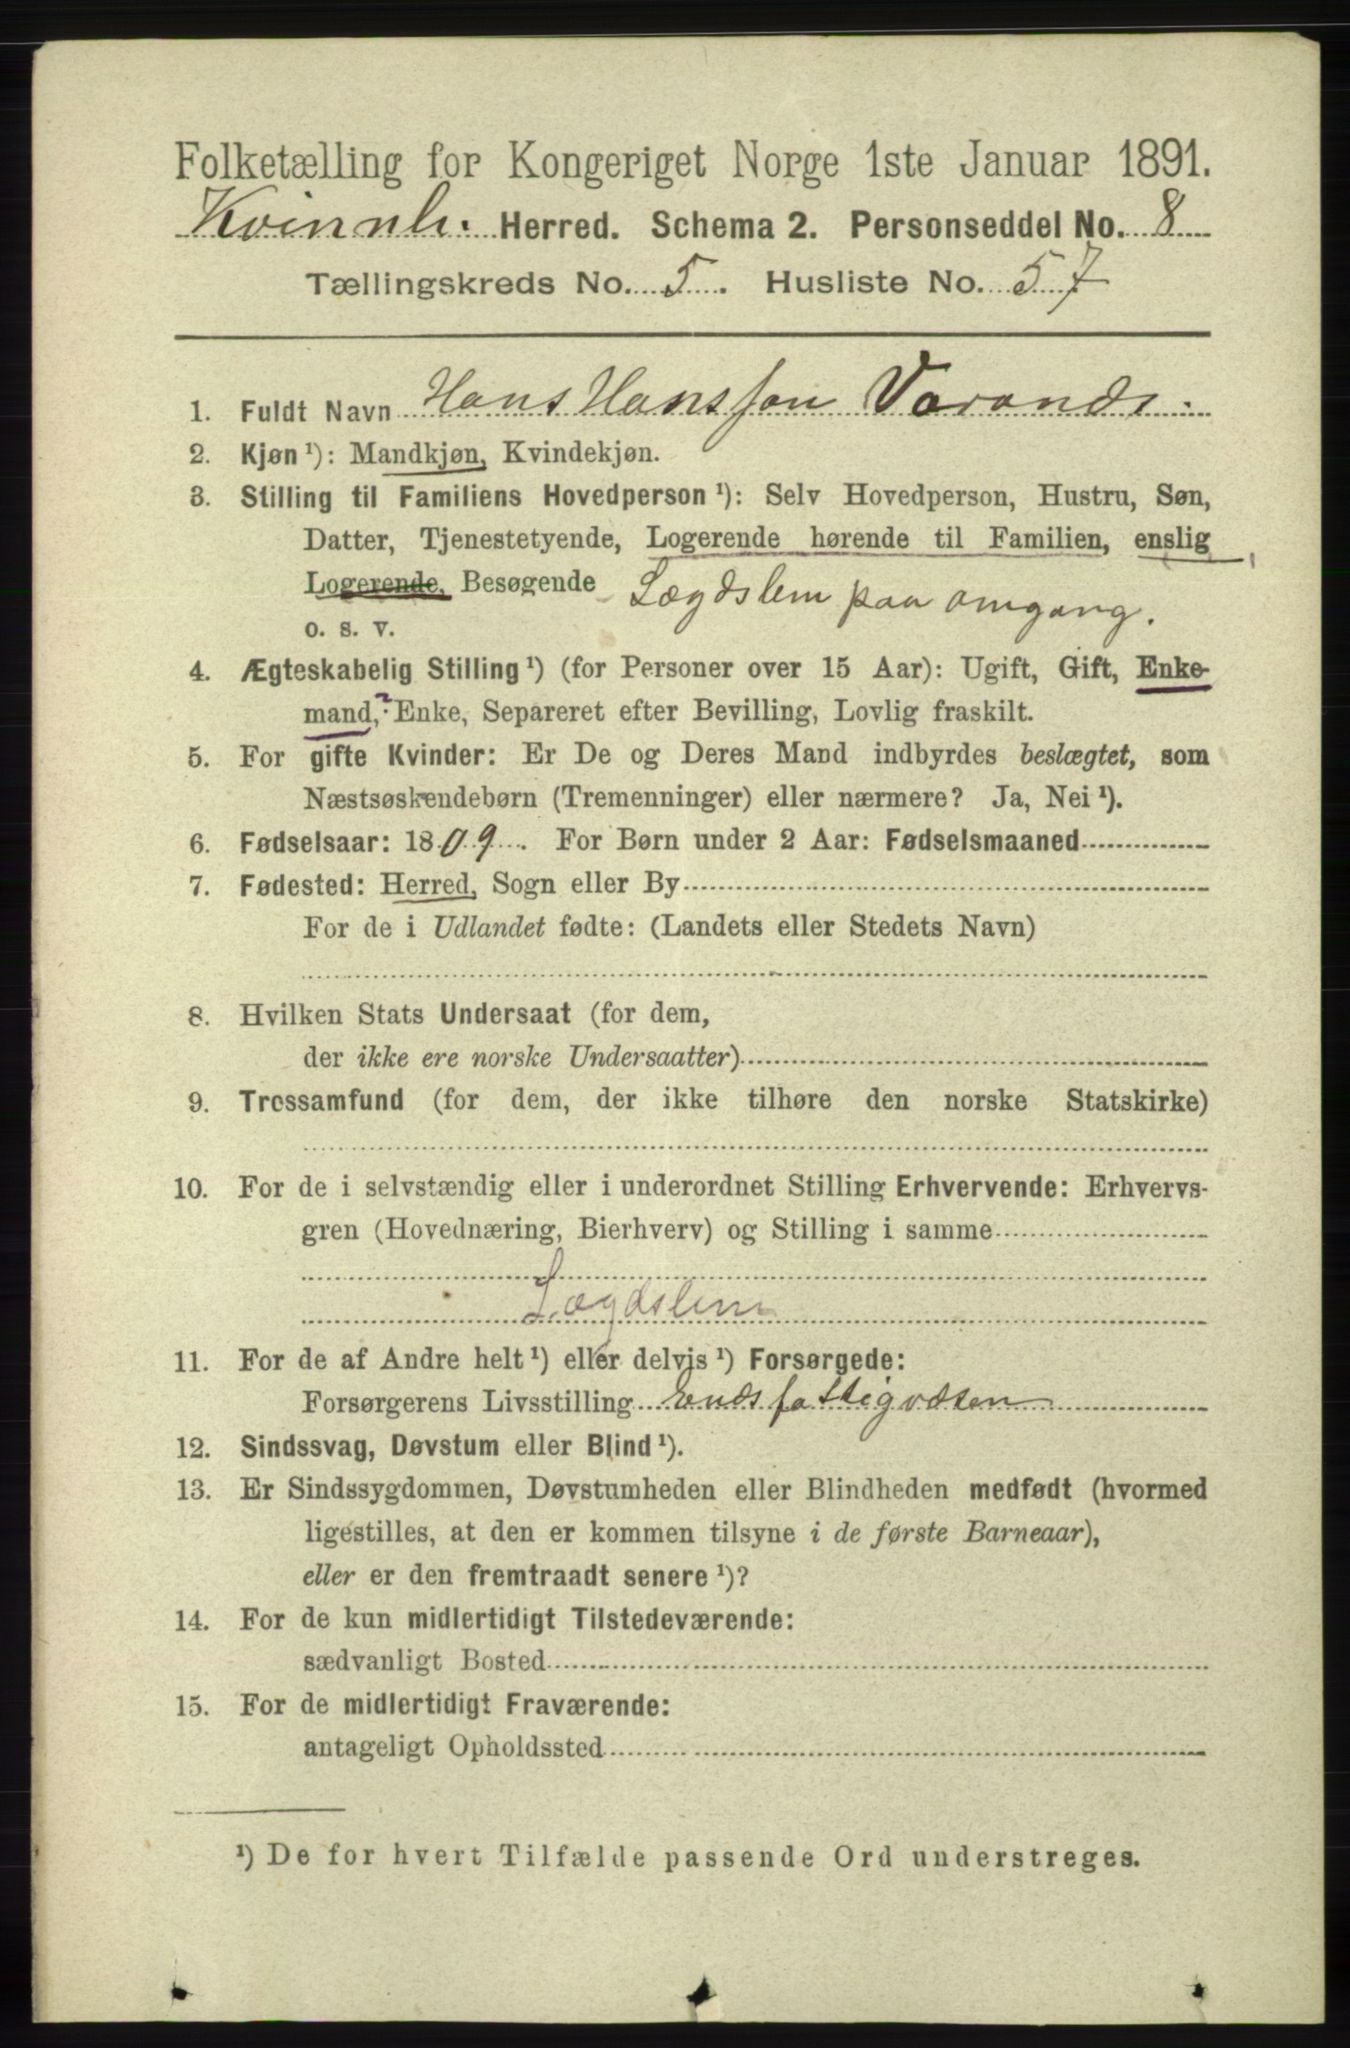 Folketælling for Kongeriget Norge 1ste Januar 1891.
Kvinnh. Herred. Schema 2. Personseddel No. 8
Tællingskreds No. 5. Husliste No. 57
1. Fuldt Navn Hans Hansson Varand
2. Kjøn ¹): Mandkjøn, Kvindekjøn.
3. Stilling til Familiens Hovedperson ¹): Selv Hovedperson, Hustru, Søn,
Datter, Tjenestetyende, Logerende hørende til Familien, enslig
Logerende, Besøgende Lægdslem paa omgang.
o. s. v.
4. Ægteskabelig Stilling ¹) (for Personer over 15 Aar): Ugift, Gift, Enke-
mand,? Enke, Separeret efter Bevilling, Lovlig fraskilt.
5. For gifte Kvinder: Er De og Deres Mand indbyrdes beslægtet, som
Næstsøskendebørn (Tremenninger) eller nærmere? Ja, Nei ¹).
6. Fødselsaar: 1809. For Børn under 2 Aar: Fødselsmaaned
7. Fødested: Herred, Sogn eller By
For de i Udlandet fødte: (Landets eller Stedets Navn)
8. Hvilken Stats Undersaat (for dem,
der ikke ere norske Undersaatter)
9. Trossamfund (for dem, der ikke tilhøre den norske Statskirke)
10. For de i selvstændig eller i underordnet Stilling Erhvervende: Erhvervs-
gren (Hovednæring, Bierhverv) og Stilling i samme
Lægdslem
11. For de af Andre helt ¹) eller delvis ¹) Forsørgede:
Forsørgerens Livsstilling fattigvæsen
12. Sindssvag, Døvstum eller Blind ¹).
13. Er Sindssygdommen, Døvstumheden eller Blindheden medfødt (hvormed
ligestilles, at den er kommen tilsyne i de første Barneaar),
eller er den fremtraadt senere ¹)?
14. For de kun midlertidigt Tilstedeværende:
sædvanligt Bosted
15. For de midlertidigt Fraværende:
antageligt Opholdssted
¹) De for hvert Tilfælde passende Ord understreges.